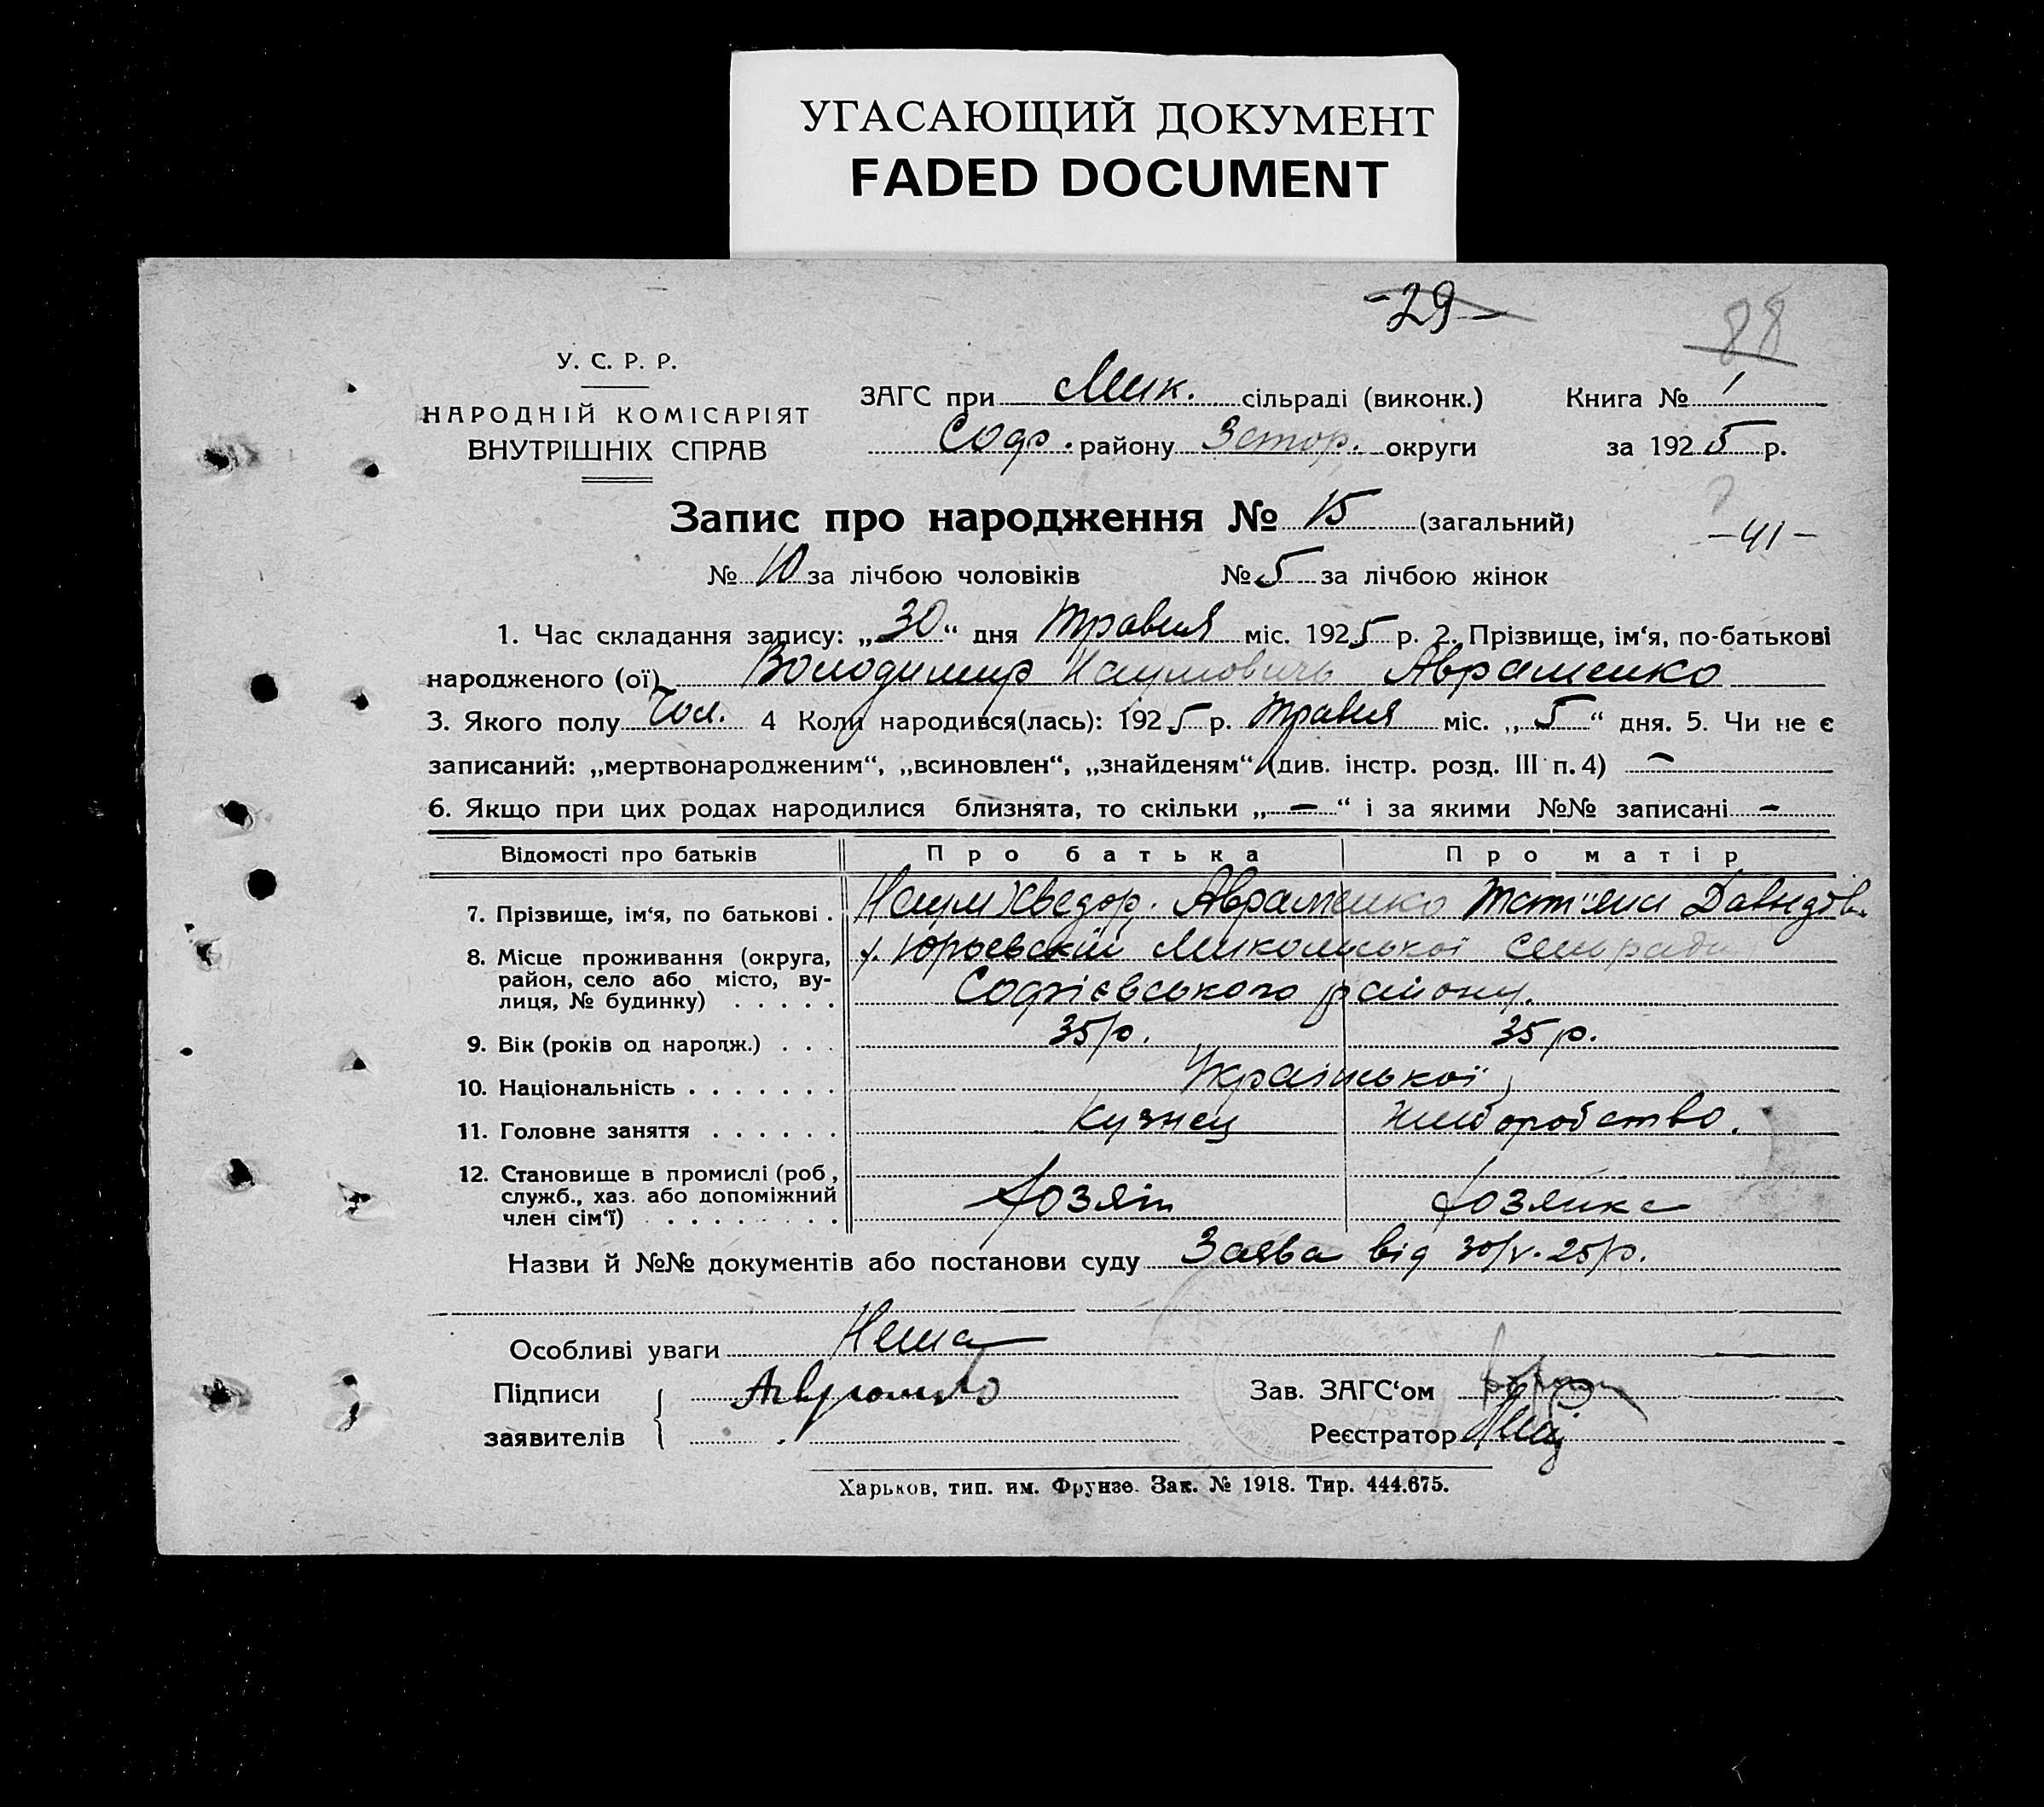 УГАСАЮЩИЙ ДОКУМЕНТ
FADED DOCUMENT
-29-
88
У. С. Р. Р.
НАРОДНІЙ КОМІСАРІЯТ
ВНУТРІШНІХ СПРАВ
ЗАГС при Мик. сільраді (виконк.) Книга № 1
Соф. району Запор. округи за 1925 р.
Запис про народження № 15 (загальний)
-41-
№ 10 за лічбою чоловіків № 5 за лічбою жінок
1. Час складання запису: „30“ дня травня міс. 1925 р. 2. Прізвище, ім‘я, по-батькові
народженого (ої) Володимир Наумовичь Авраменко
3. Якого полу Чол. 4 Коли народився(лась): 1925 р. травня міс. „5“ дня. 5. Чи не є
записаний: „мертвонародженим“, „всиновлен“, „знайденям“ (див. інстр. розд. III п. 4) —
6. Якщо при цих родах народилися близнята, то скільки „—“ і за якими №№ записані —
Відомості про батьків Про батька Про матір
7. Прізвище, ім‘я, по батькові . Наум Хведор. Авраменко Тат‘яна Давидов.
8. Місце проживання (округа, район, село або місто, вулиця, № будинку) х. Юрьевский Миколаської сельради
Софієвського району.
9. Вік (років од народж.) . . . 35 р. 35 р.
10. Національність . . . . . . . Української
11. Головне заняття . . . . . . Кузнец хліборобство.
12. Становище в промислі (роб., служб., хаз. або допоміжний член сім‘ї) . . . . . . . . Хозяїн Хозяйка
Назви й №№ документів або постанови суду Заява від 30/V-25 р.
Особливі уваги Нема
Підписи Авраменко Зав. ЗАГС‘ом
заявителів Реєстратор
Харьков, тип. им. Фрунзе. Зак. № 1918. Тир. 444.675.